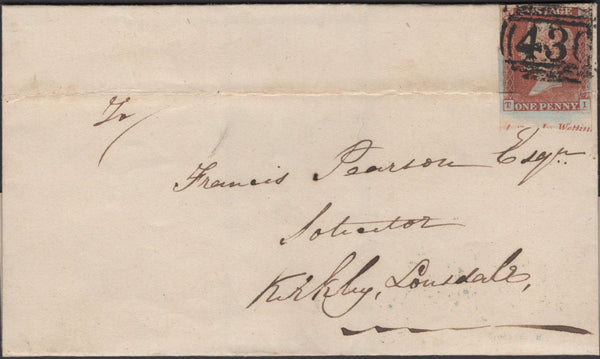 POSTAGE
43
ONE PENNY
T I
Wetting
To
Francis Pearson Esqr.
Solicitor
Kirkby, Lonsdale,